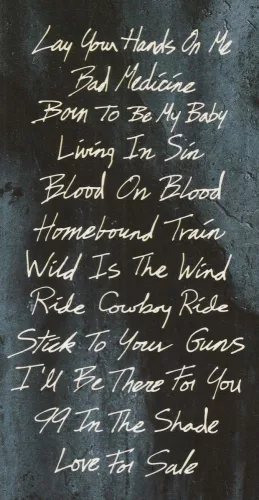 Lay Your Hands On Me
Bad Medicine
Born To Be My Baby
Living In Sin
Blood On Blood
Homebound Train
Wild Is The Wind
Ride Cowboy Ride
Stick To Your Guns
I'll Be There For You
99 In The Shade
Love For Sale